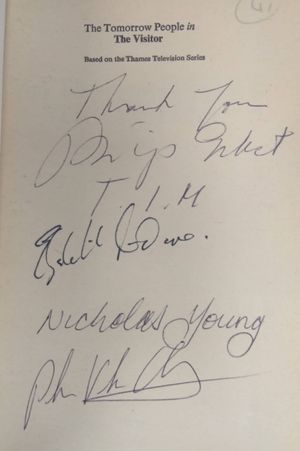 The Tomorrow People in
The Visitor
Based on the Thames Television Series
Thank You
Philip Gilbert
T.I.M
Elizabeth Adare.
Nicholas Young